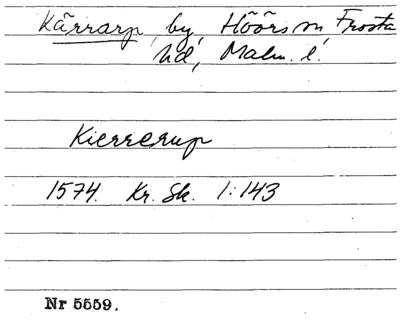 Kärrarp, by, Höörs sn, Frosta
hd, Malm. l.
Kierrerup
1574. Kr. Sk. 1:143
Nr 5559.